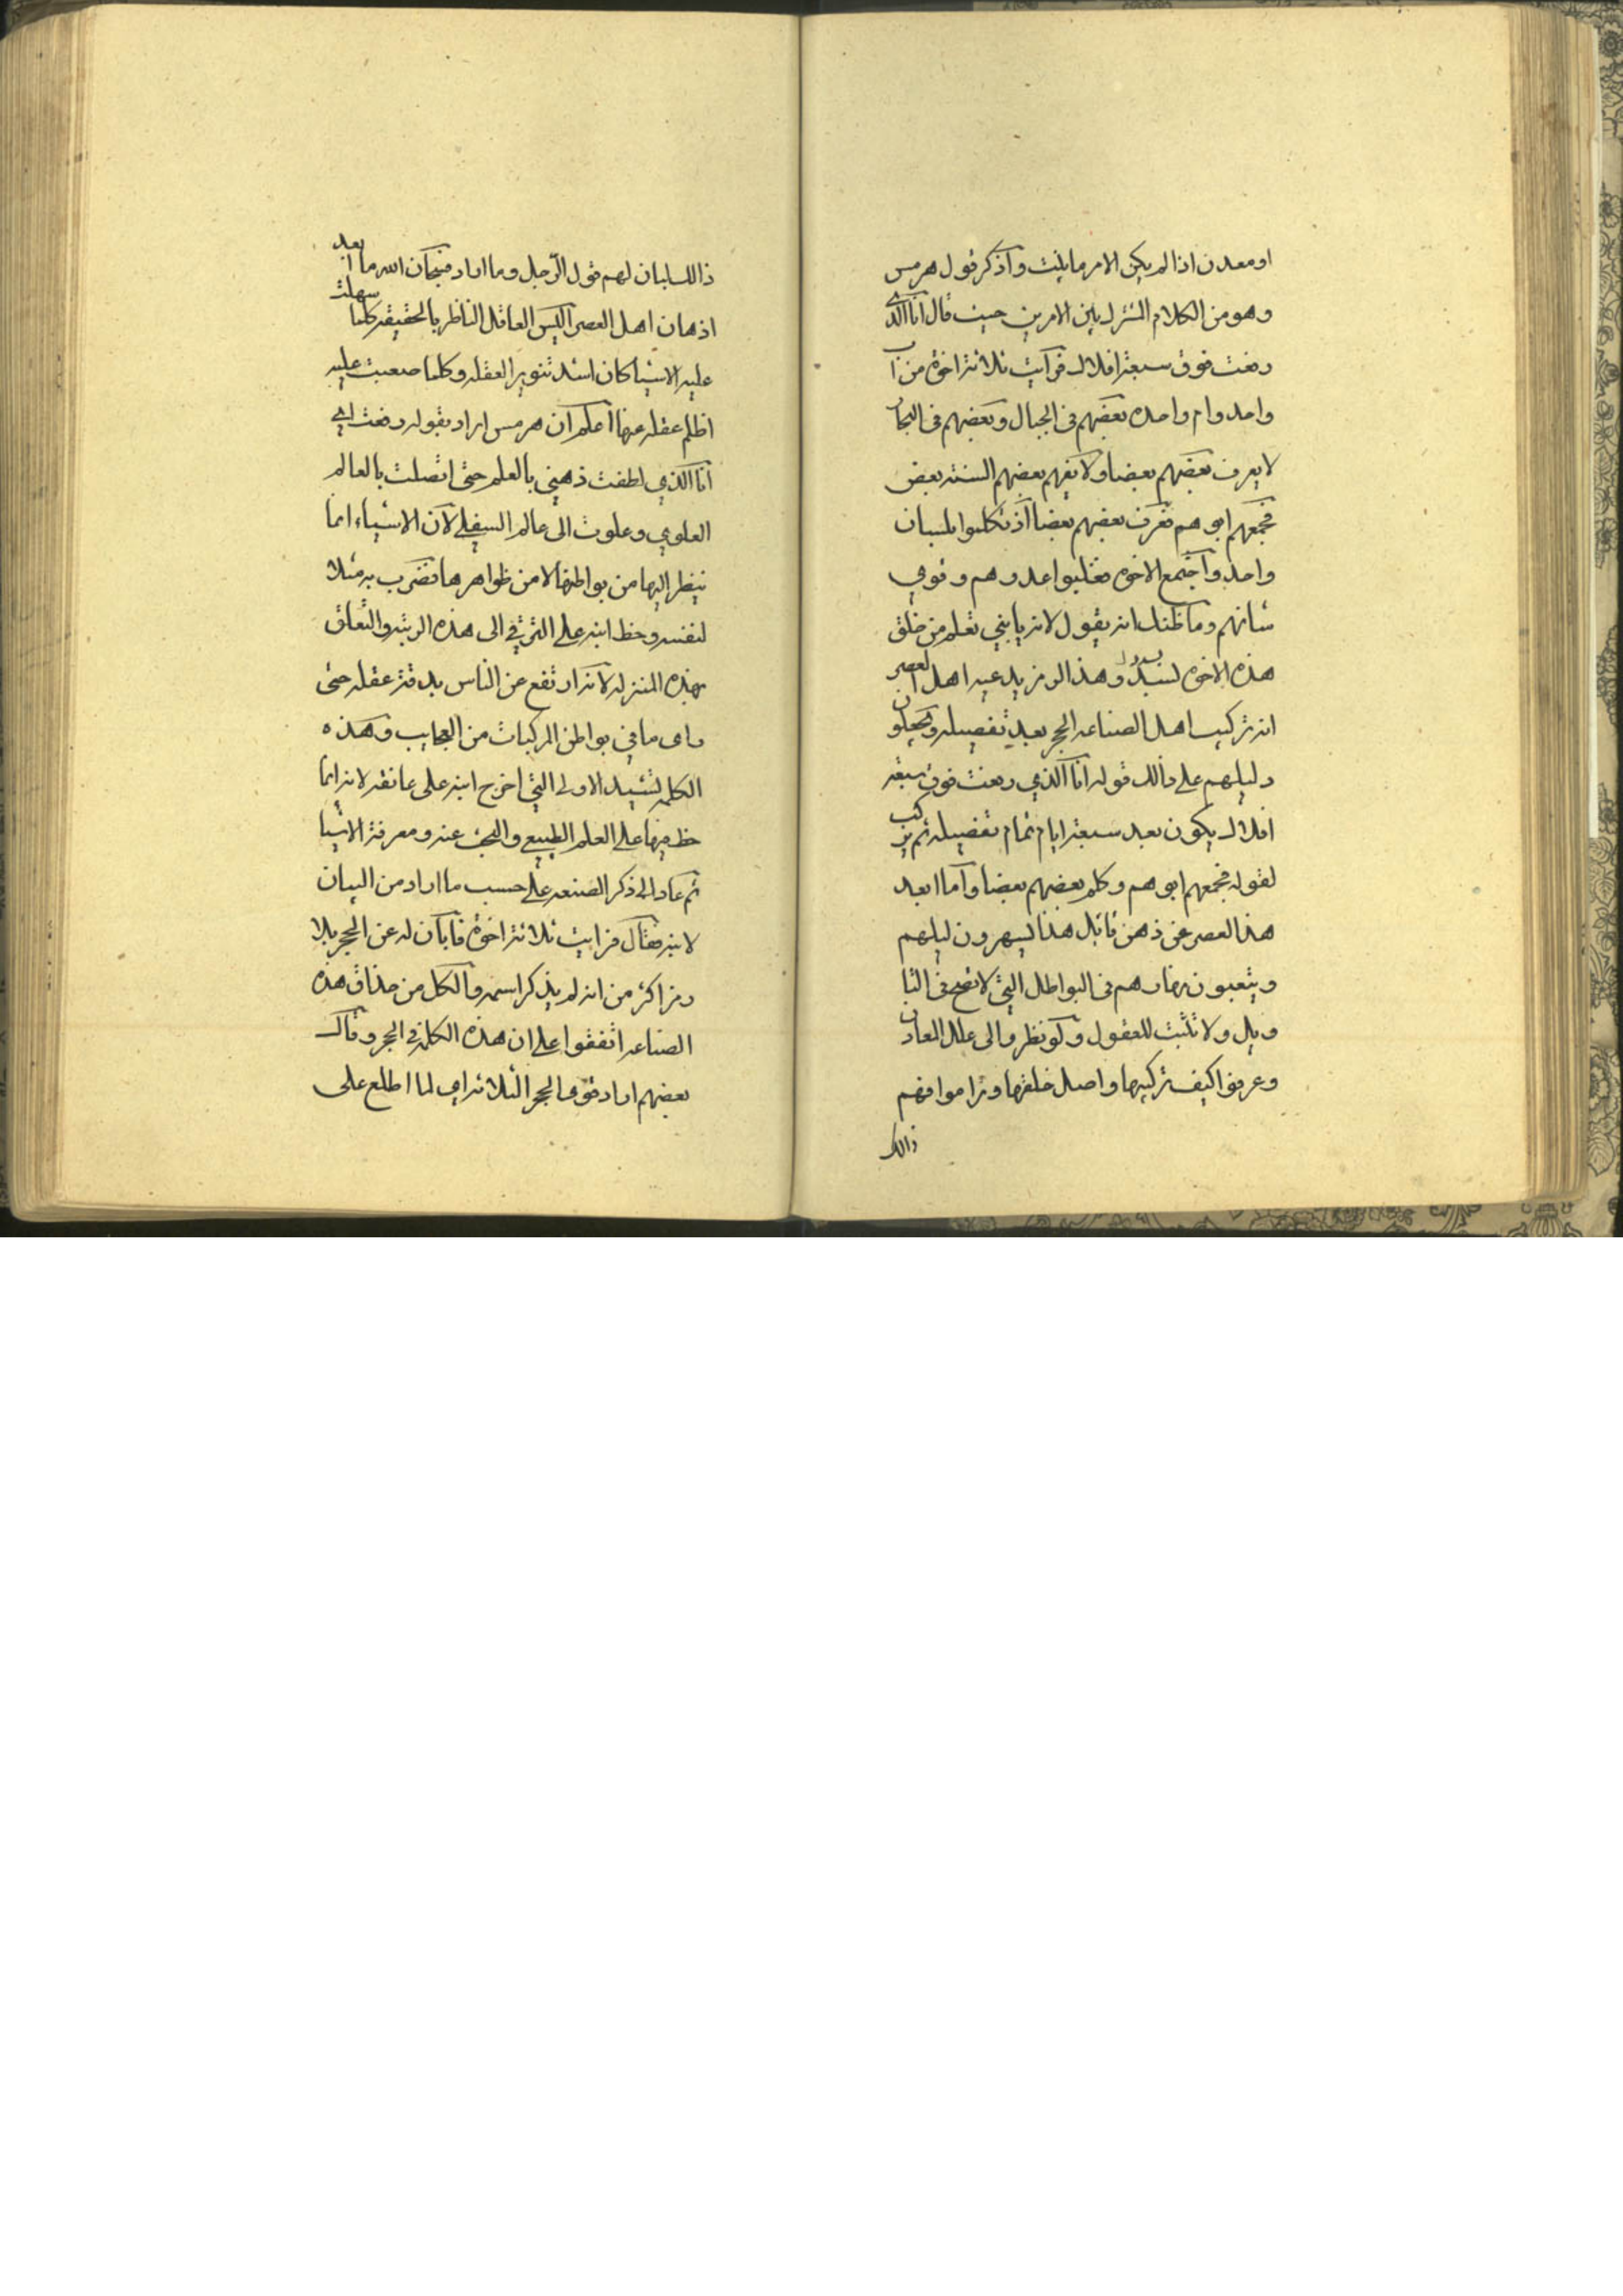 او معدن اذا لم يكن الامر مايليت واذكر قول هرمس
وهو من الكلام المشترك بين الامرين حيث قال انا الذي
رفعت فوق سبعة افلاك فرايت ثلاثة اخوة من اب
واحد وام واحده بعضهم في الجبال وبعضهم في البحار
لا يعرف بعضهم بعضا ولا يفهم بعضهم السنة بعض
فجمعهم ابوهم فعرف بعضهم بعضا اذ تكلموا بلسان
واحد واجتمع الاخوه فغلبوا عدوهم وقوي
شانهم وما ظنك انه يقول لابنه يا بني تعلم من خلق
هذه الاخوه وهذا الرمز يدعيه اهل العصر
انه تركيب اهل الصناعه الحجر بعد تفصيله ويجعلون
دليلهم على ذالك قوله انا الذي رفعت فوق سبعة
افلاك يكون بعد سبعة ايام تمام تفصيله ثم يركب
لقوله فجمعهم ابوهم وكلم بعضهم بعضا واما ابعد
هذا العصر عن ذهن قائل هذا يسهرون ليلهم
ويتعبون نهارهم في البواطل التي لا تصح في التا
ويل ولا تثبت للعقول ولو نظروا الى علل المعادن
وعرفوا كيف تركيبها واصل خلقها وراموا فهم
ذالك
ذالك لبان لهم قول الرجل وما اراد فسبحان الله ما ابعد
اذهان اهل العصر اليس العاقل الناظر بالحقيقه كلما سهلت
عليه الاشيا كان اشد تنوير العقله وكلما صعبت عليه
اظلم عقله عنها اعلم ان هرمس اراد بقوله رفعت اي
انا الذي لطفت ذهني بالعلم حتى اتصلت بالعالم
العلوي وعلوت الى عالم السفلي لان الاشياء انما
ينظر اليها من بواطنها لا من ظواهرها فضرب به مثلا
لنفسه وحظ ابنه على الترقي الى هذه الرتبه والتعلق
بهذه المنزله لانه ارتفع عن الناس بدقة عقله حتى
راى ما في بواطن المركبات من العجايب وهذه
الكلمه تشيد الاولى التي اخرج ابنه على عاتقه لانه انما
حظ فيها على العلم الطبيعي والبحث عنه ومعرفة الاشيا
ثم عاد الى ذكر الصنعه على حسب ما اراد من البيان
لابنه فقال فرايت ثلاثة اخوة فابان له عن الحجر بلا
رمز اكثر من انه لم يذكر اسمه والكل من حذاق هذه
الصناعه اتفقوا على ان هذه الكلمه في الحجر وقال
بعضهم اراد قوى الحجر الثلاثه اي لما اطلع على